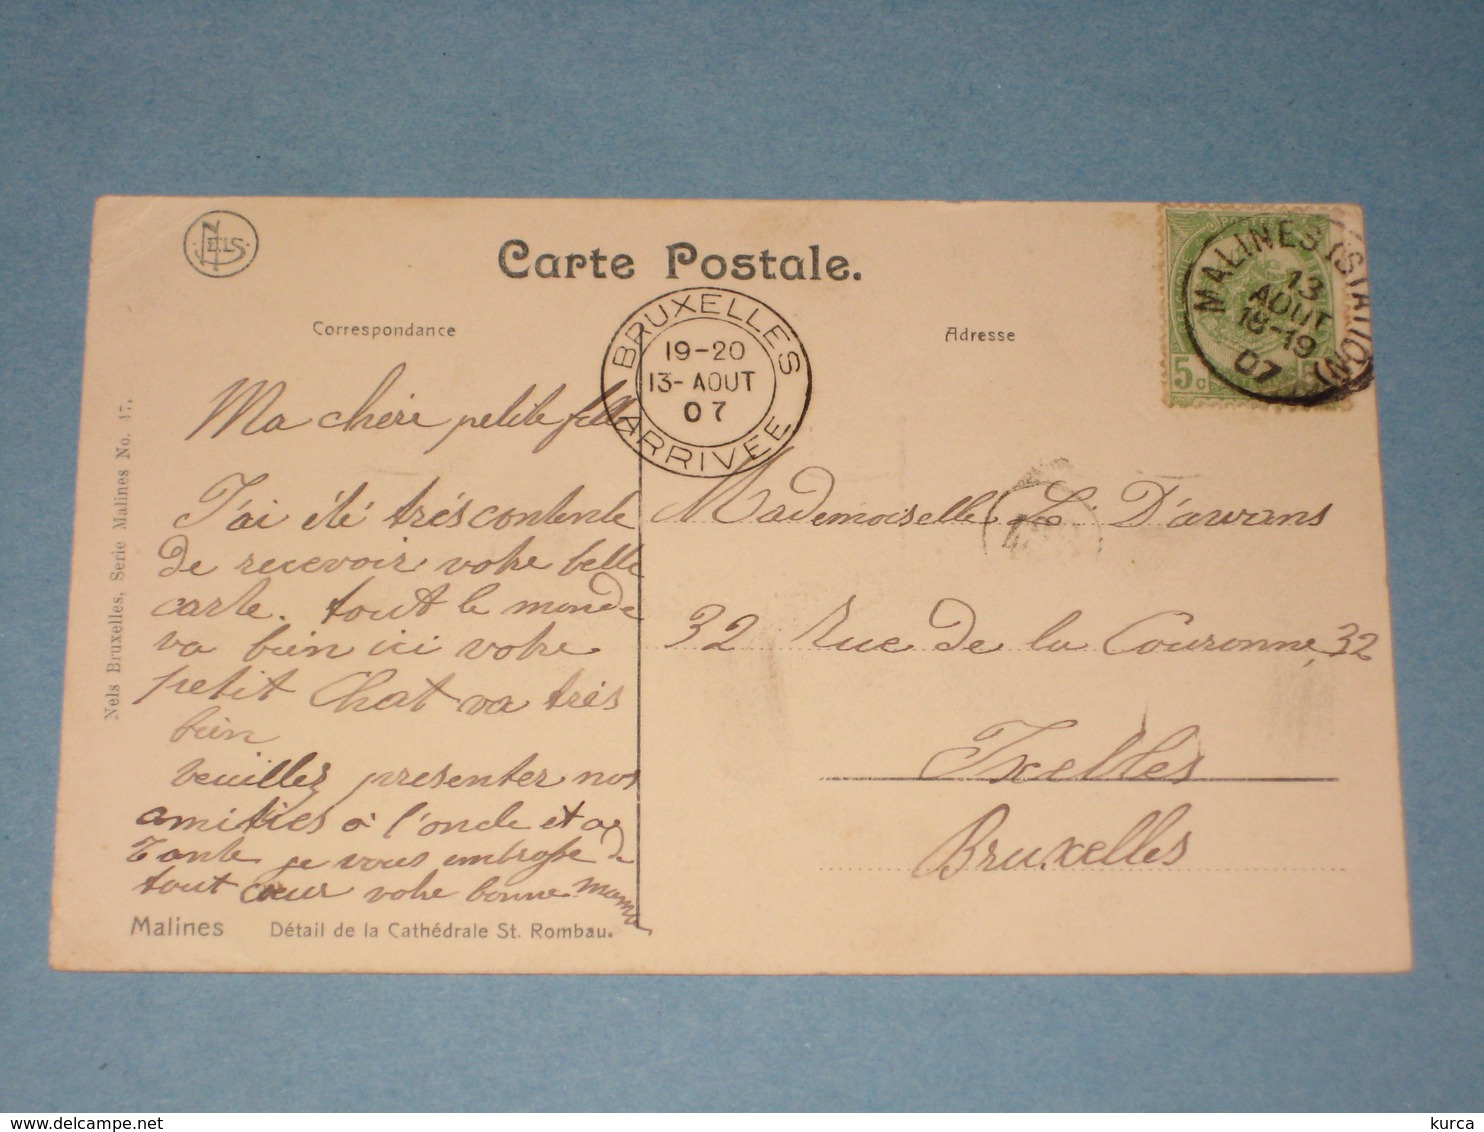 NELS
Carte Postale.
Correspondance
Adresse
BRUXELLES
19-20
13-AOUT
07
ARRIVEE
MALINES (STATION)
13
AOUT
18-19
07
5c
Ma chère petite fille
J'ai été très contente
de recevoir votre belle
carte. tout le monde
va bien ici votre
petit Chat va très
bien
veuillez presenter nos
amitiés à l'oncle et a
Tante je vous embrasse de
tout cœur votre bonne mama
Mademoiselle L. D'awans
32 Rue de la Couronne, 32
Ixelles
Bruxelles
Nels Bruxelles. Serie Malines No. 47.
Malines Détail de la Cathédrale St. Rombau.
delcampe.net
kurca